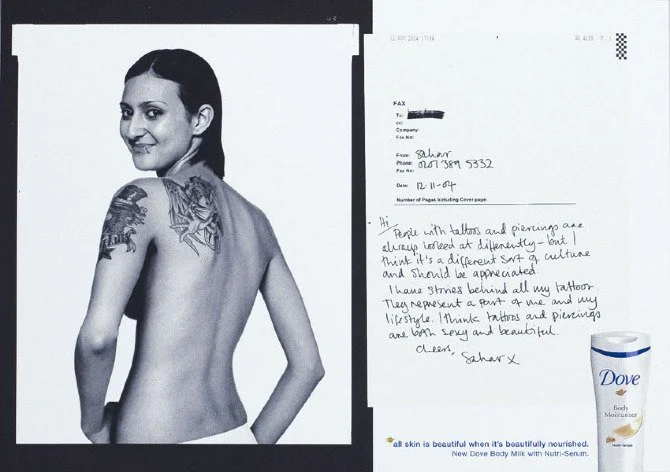 FAX
To:
cc:
Company:
Fax No:
From: Sahar
Phone: 0207 389 5332
Fax No:
Date: 12-11-04
Number of Pages Including Cover page:
Hi
People with tattoos and piercings are
always looked at differently - but I
think it's a different sort of culture
and should be appreciated
I have stories behind all my tattoos.
They represent a part of me and my
lifestyle. I think tattoos and piercings
are both sexy and beautiful.
Cheers,
Sahar x
Dove
Body
Moisturiser
all skin is beautiful when it's beautifully nourished.
New Dove Body Milk with Nutri-Serum.